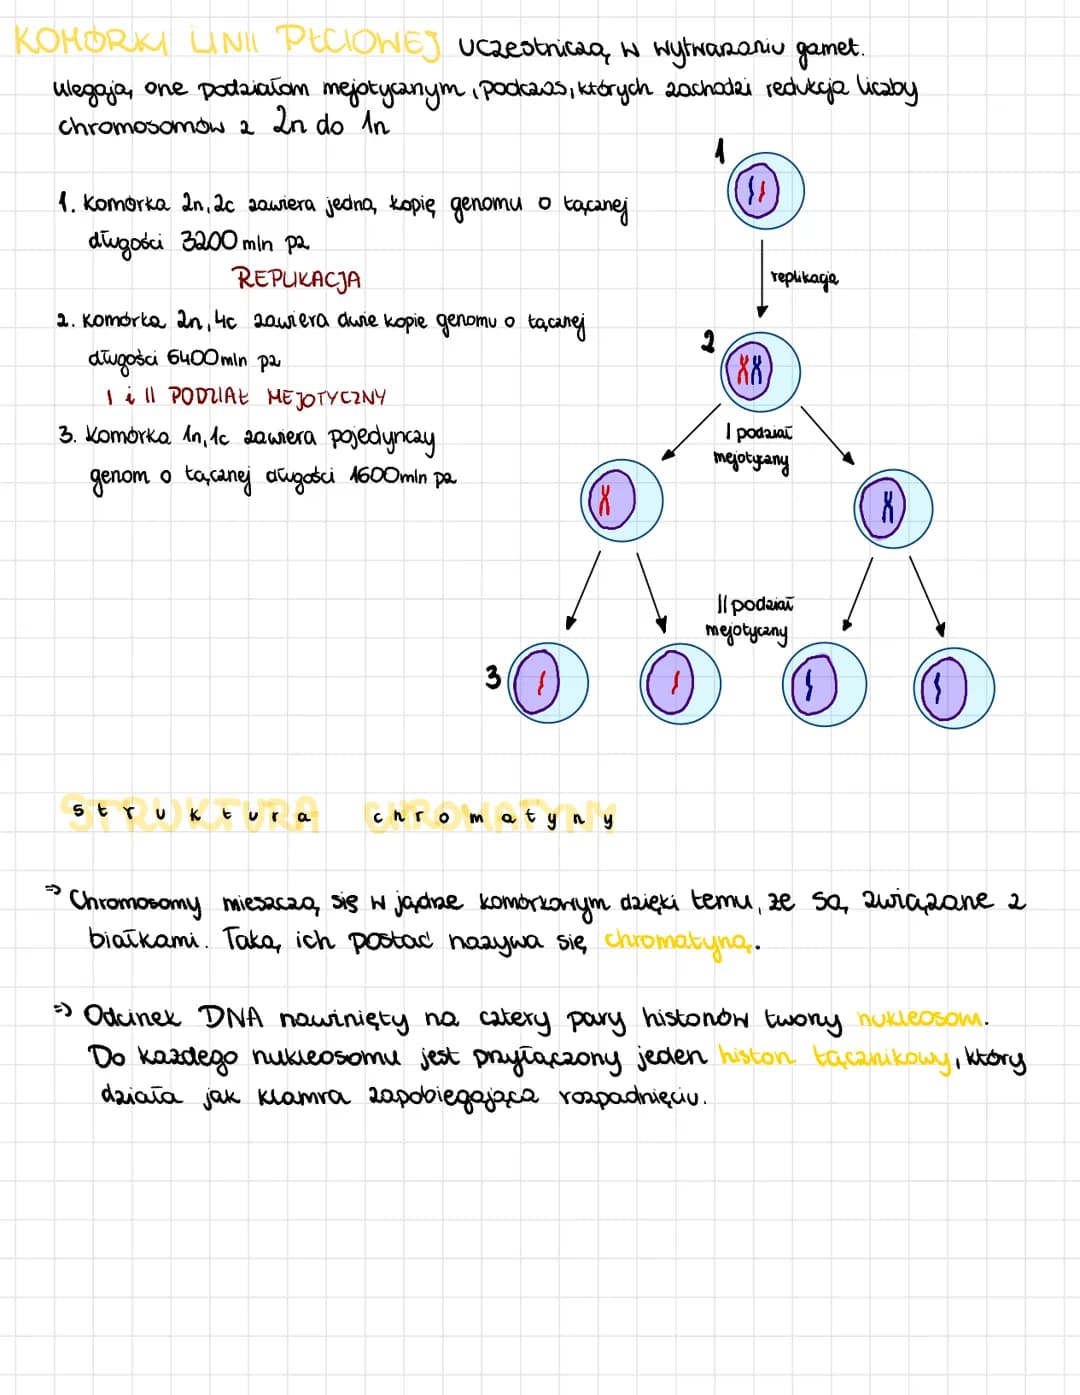 KOMÓRKI LINII PŁCIOWEJ uczestniczą w wytwarzaniu gamet.
Ulegają one podziałom mejotycznym, podczas, których zachodzi redukcja liczby
chromosomów z 2n do 1n
1. Komórka 2n, 2c zawiera jedną kopię genomu o łącznej
długości 3200 mln pz
REPLIKACJA
2. Komórka 2n, 4c zawiera dwie kopie genomu o łącznej
długości 6400mln pz
I i II PODZIAŁ MEJOTYCZNY
3. Komórka 1n, 1c zawiera pojedynczy
genom o łącznej długości 1600mln pz
1
replikacja
2
I podział
mejotyczny
II podział
mejotyczny
3
STRUKTURA CHROMATYNY
struktura chromatyny
⇒ Chromosomy mieszczą się w jądrze komórkowym dzięki temu, że są związane z
białkami. Taką ich postać nazywa się chromatyną.
⇒ Odcinek DNA nawinięty na cztery pary histonów tworzy nukleosom.
Do każdego nukleosomu jest przyłączony jeden histon łącznikowy, który
działa jak klamra zapobiegająca rozpadnięciu.